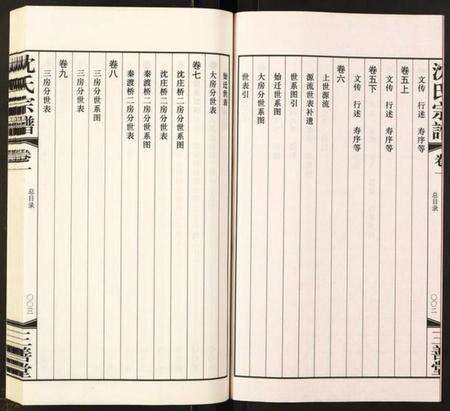 沈氏宗譜
卷一
总目录
〇〇二
三善堂
文传 行述 寿序等
卷五上
文传 行述 寿序等
卷五下
文传 行述 寿序等
卷六
上世源流
源流世表补遗
始迁世系图
大房分世系图
世系引
世表引
始迁世表
大房分世表
卷七
沈庄桥二房分世系图
沈庄桥二房分世表
秦渡桥二房分世系图
秦渡桥二房分世表
卷八
三房分世系图
三房分世表
卷九
三房分世表
沈氏宗譜
卷一
总目录
〇〇三
三善堂